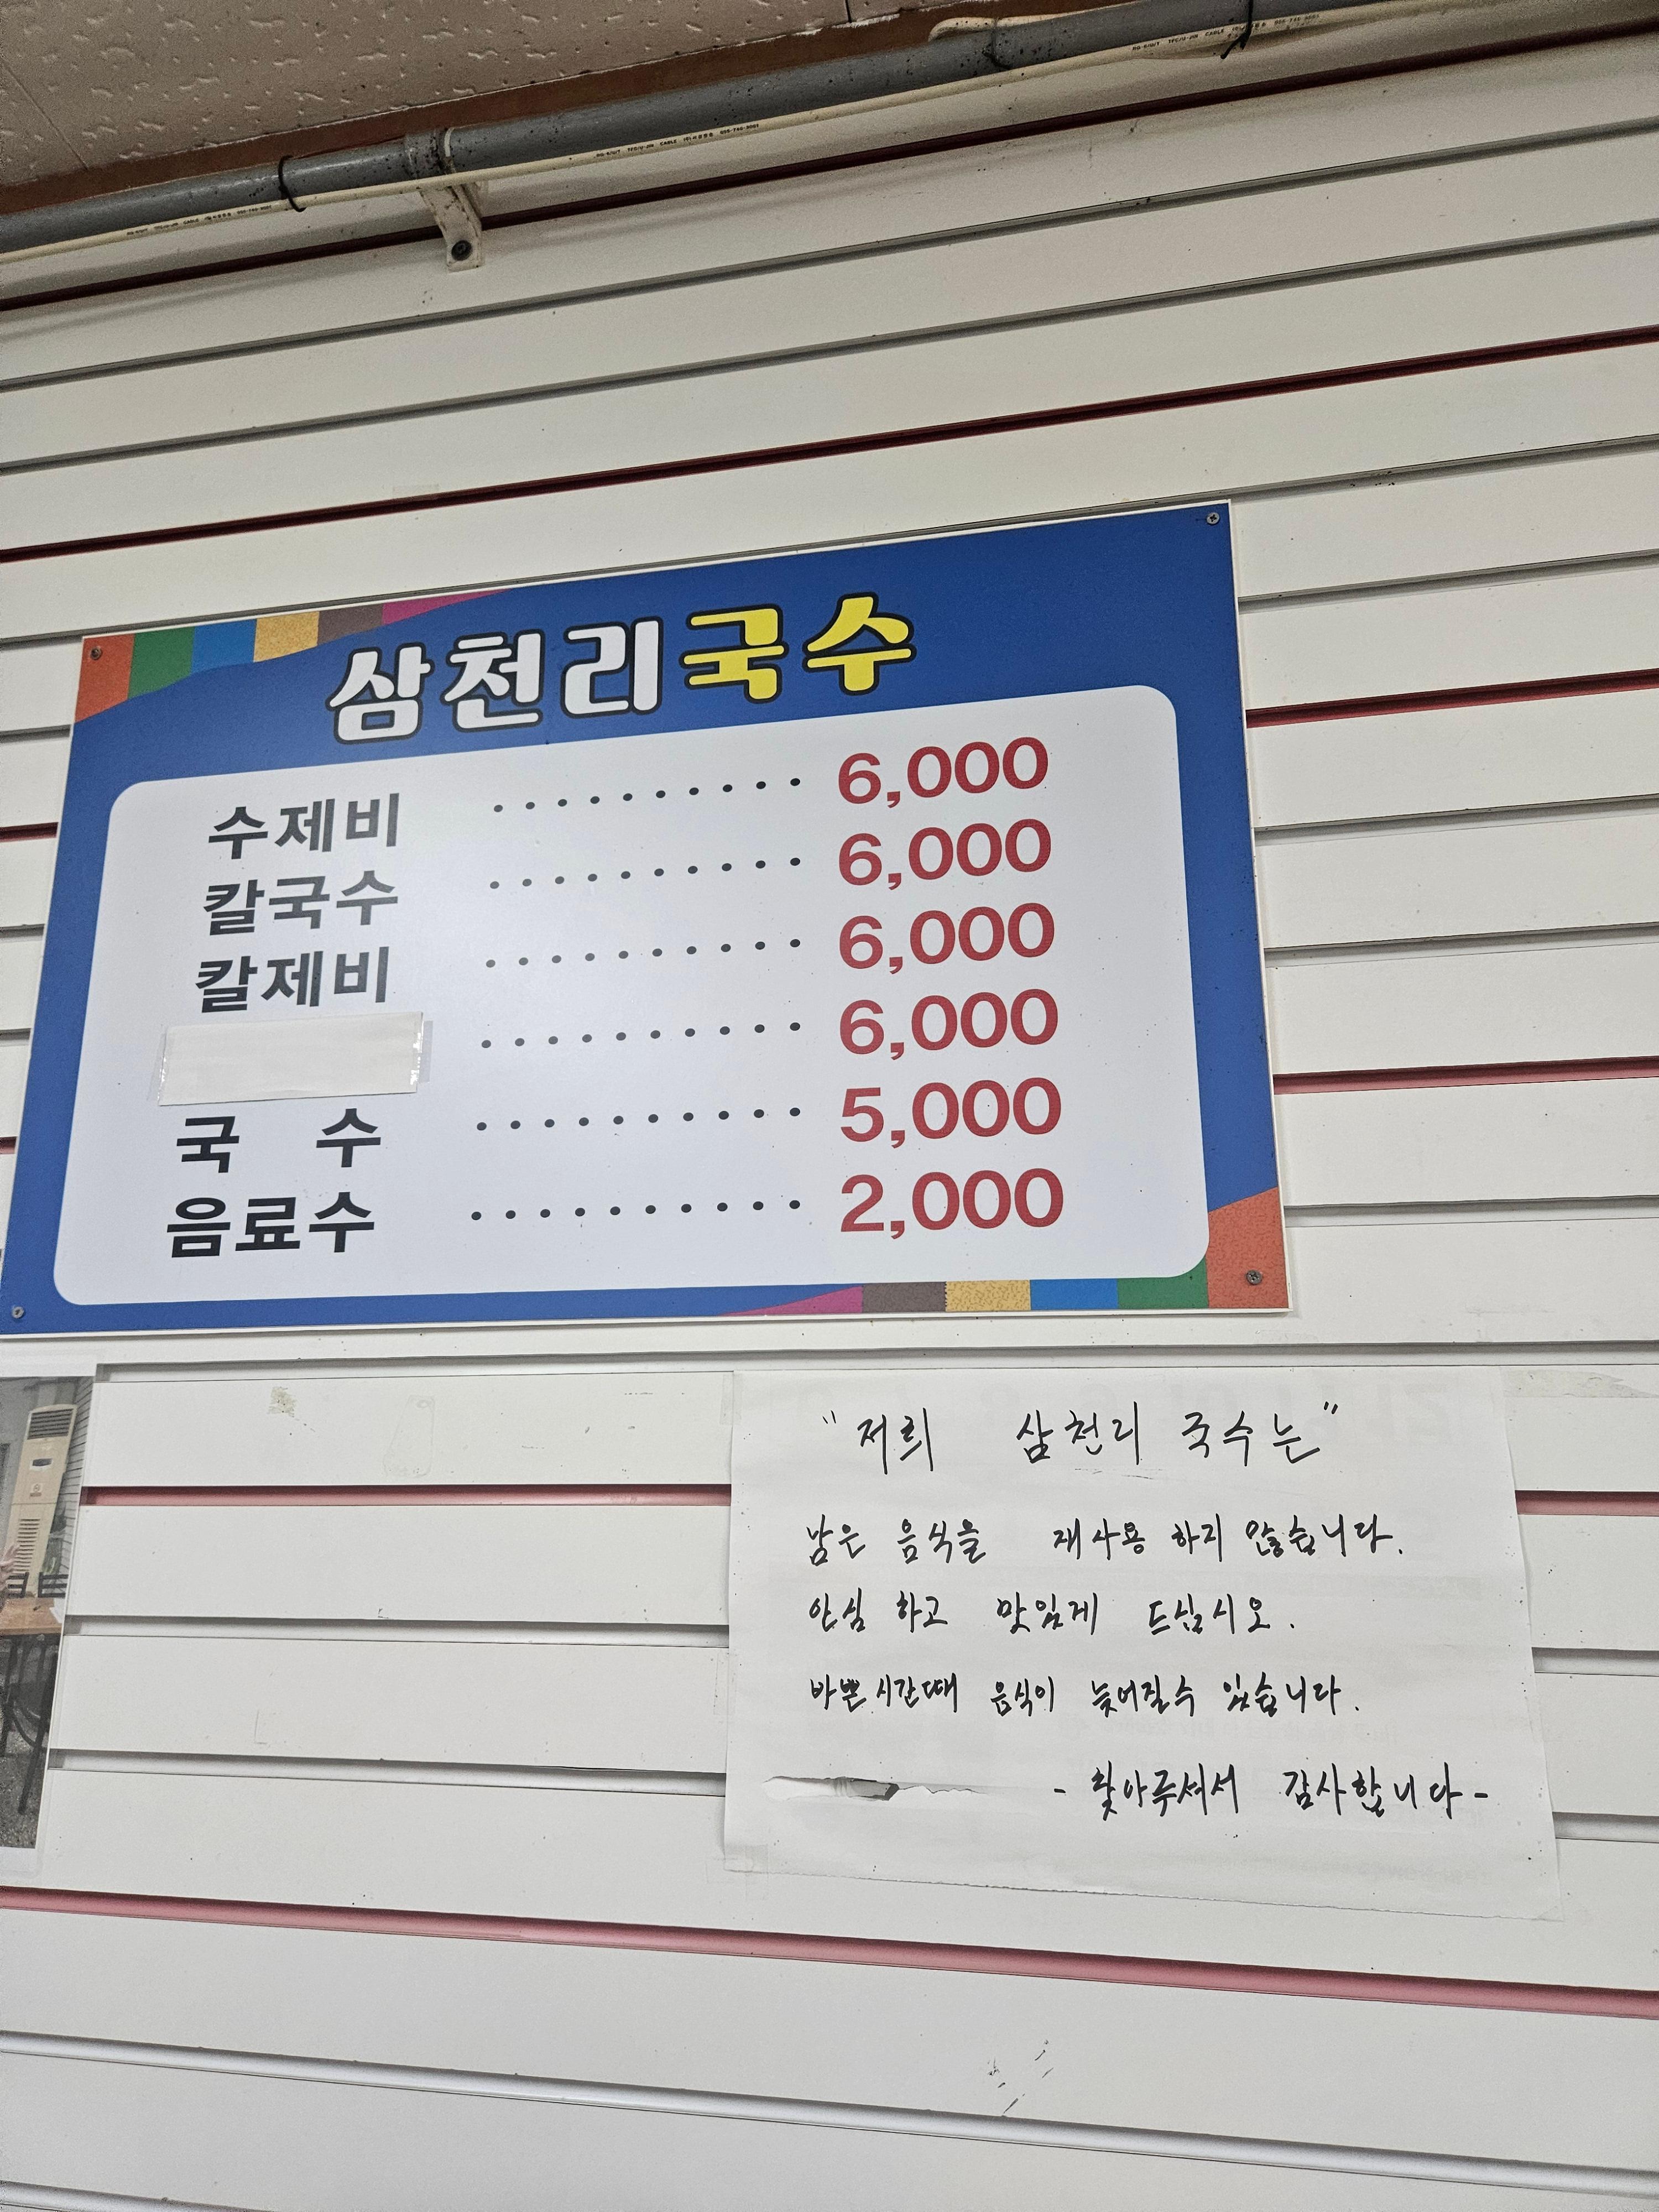 삼천리국수
수제비 .......... 6,000
칼국수 .......... 6,000
칼제비 .......... 6,000
.......... 6,000
국 수 .......... 5,000
음료수 .......... 2,000
"저희 삼천리 국수는"
남은 음식을 재사용 하지 않습니다.
안심 하고 맛있게 드십시오.
바쁜시간때 음식이 늦어질수 있습니다.
- 찾아주셔서 감사합니다-